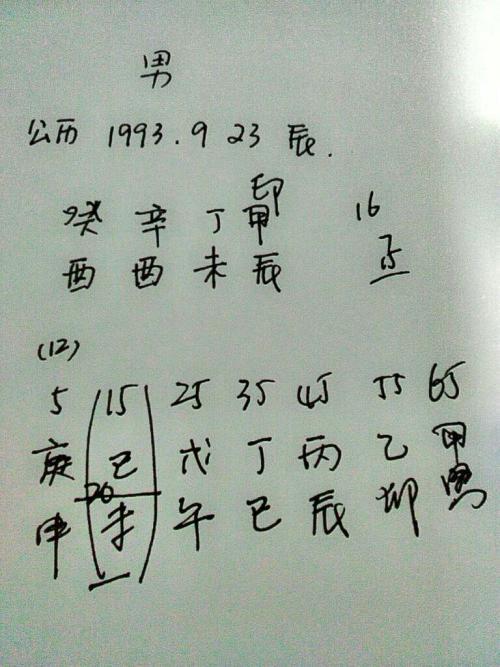 男
公历 1993.9 23 辰.
印
癸 辛 丁 甲 16
酉 酉 未 辰 15
(12)
5 15 25 35 45 55 65
庚 己 戊 丁 丙 乙 甲
20
申 未 午 巳 辰 卯 寅